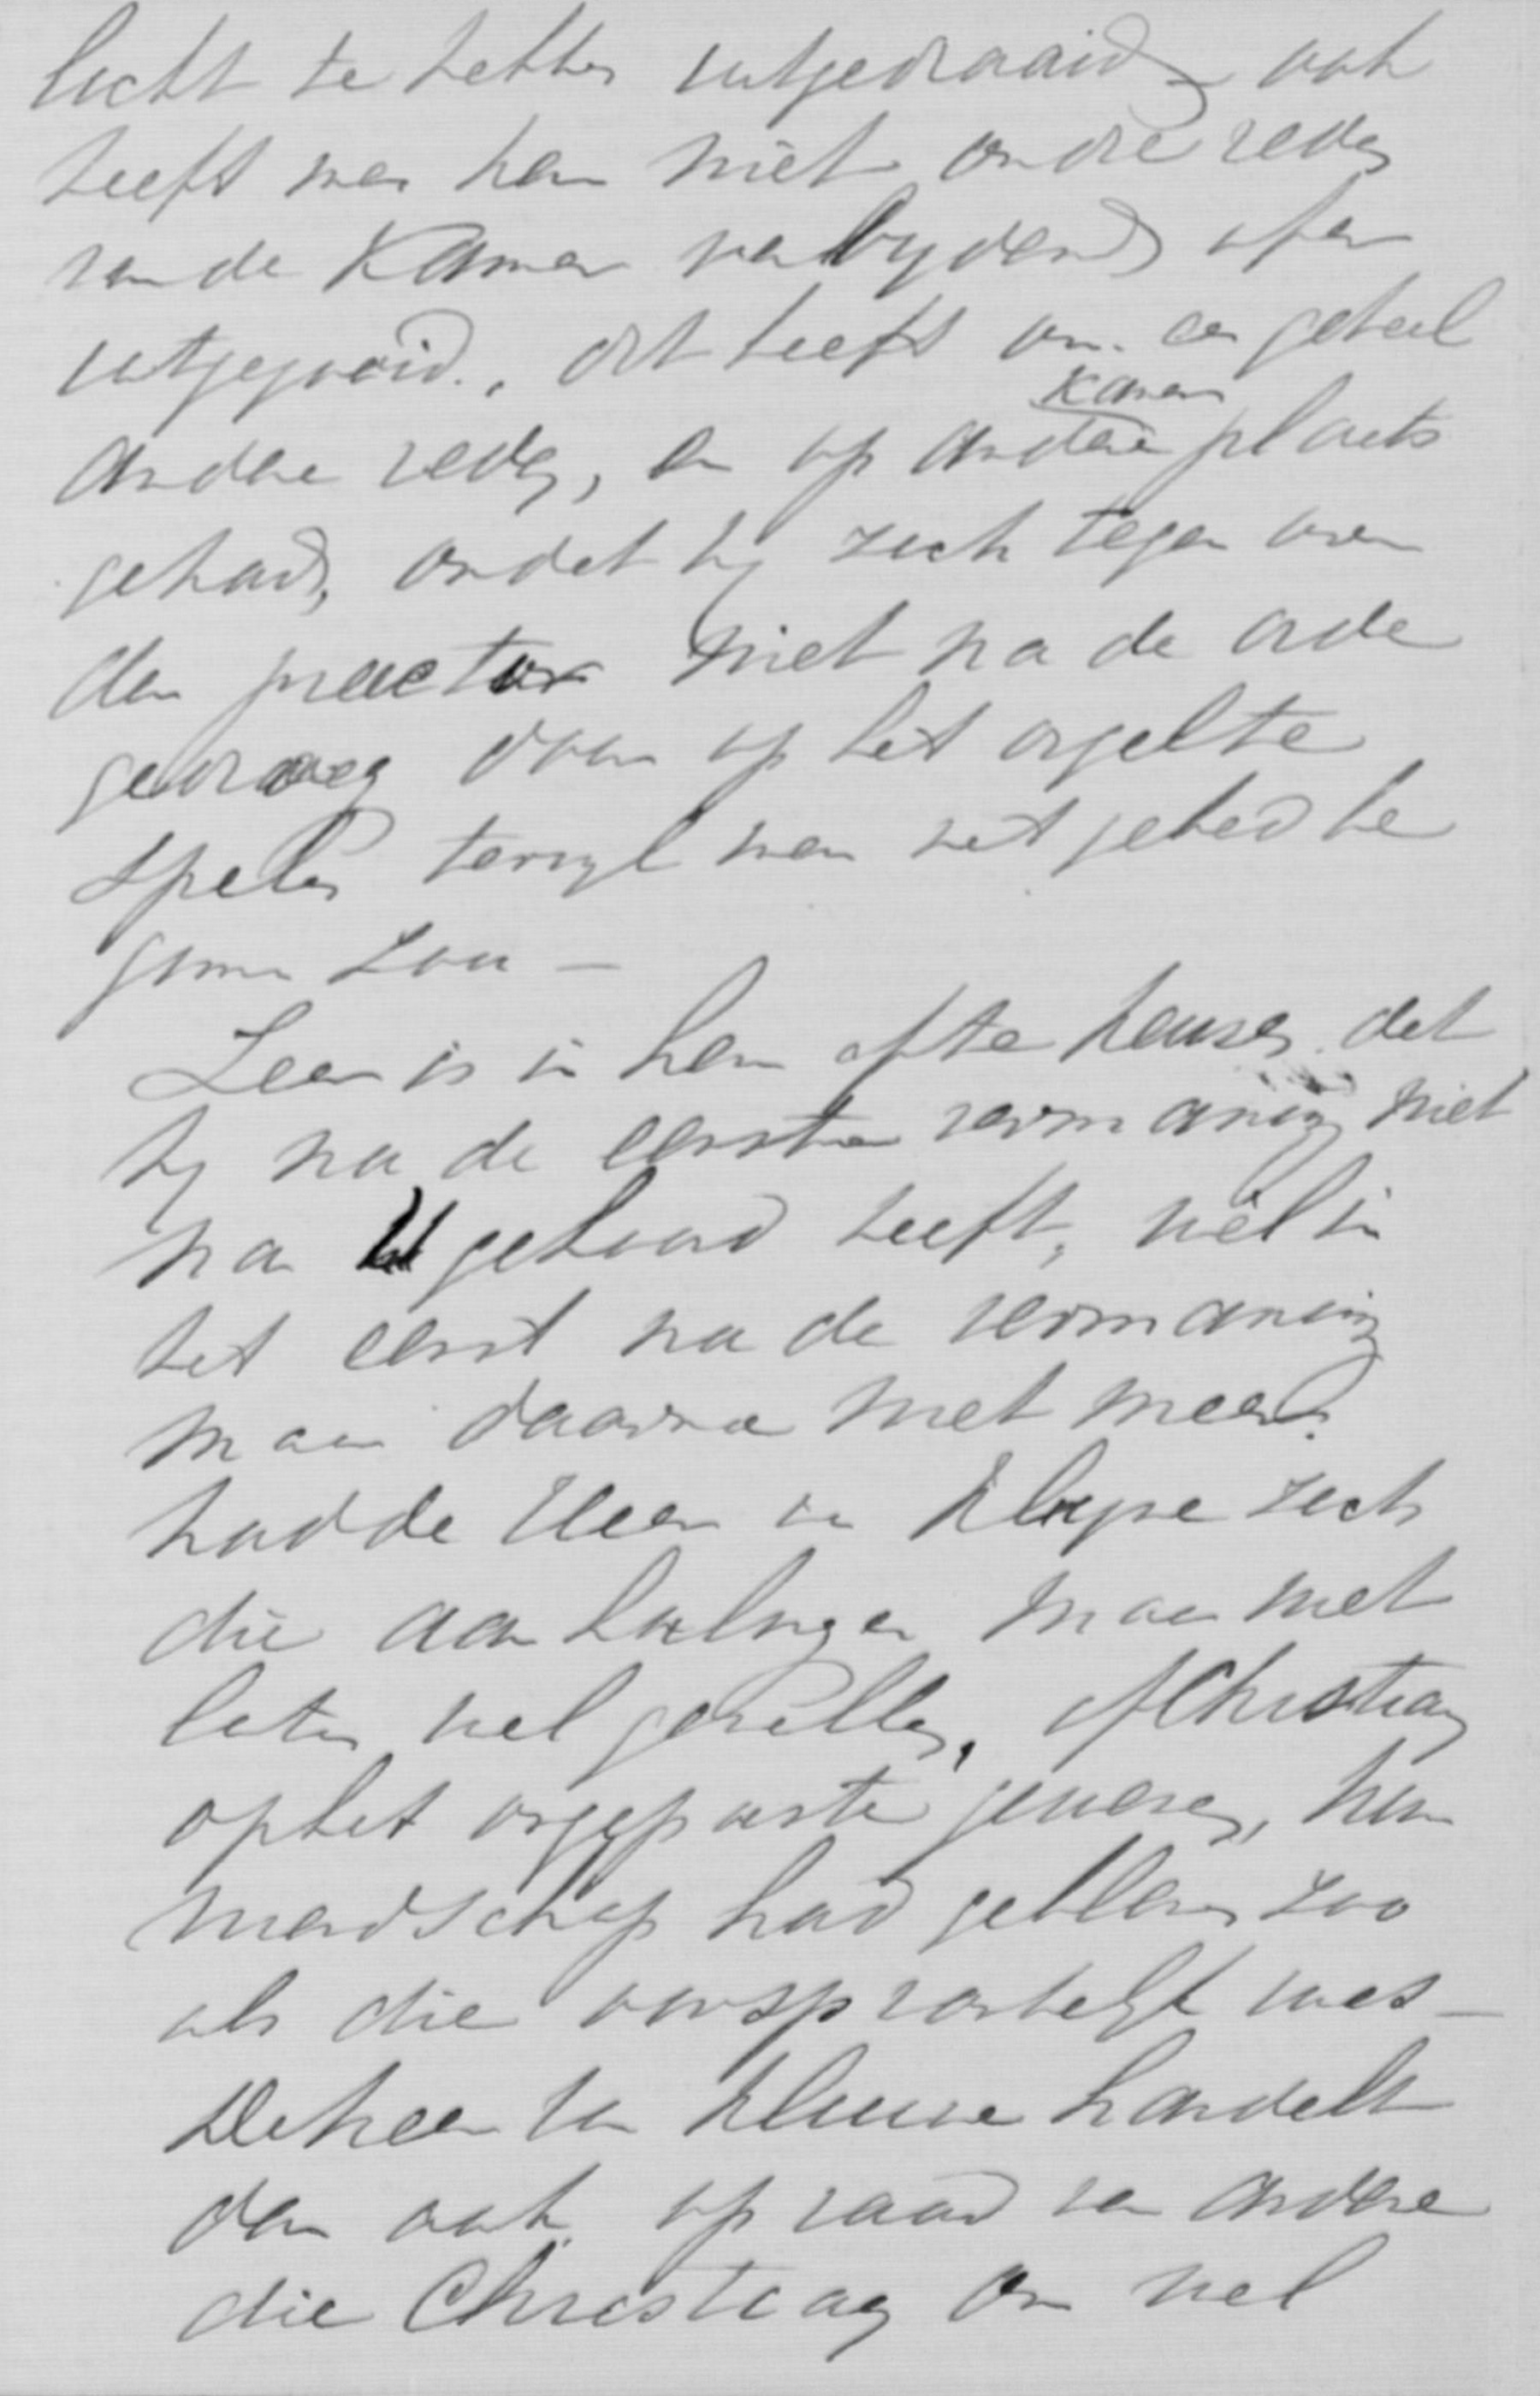 licht te hebben uitgedraaid, ook
heeft men hem niet om die reden
van de Kamer verwyderd of er
uitgegooid., dit heeft om een geheel
andere reden, en op andere Kamer plaats
gehad, omdat hy zich tegen over
den praector niet na de orde
gedroeg door op het orgel te
spelen terwyl men het gebed be
ginnen zou —
Leer is in hem af te keuren dat
hy na de eerste vermaning niet
na U gehoord heeft, wel in
het eerst na de vermaning
maar daarna niet meer.
hadde Heer v Kluyse zich
die aanhalingen maar niet
laten wel gevallen, of Christiaan
op het orgepaste gewezen,
vriendschap had gebleven zoo
als die oorspronkelyk was —
De heer van Kluise handelt
dan ook op raad van andere
die Christiaan om wel